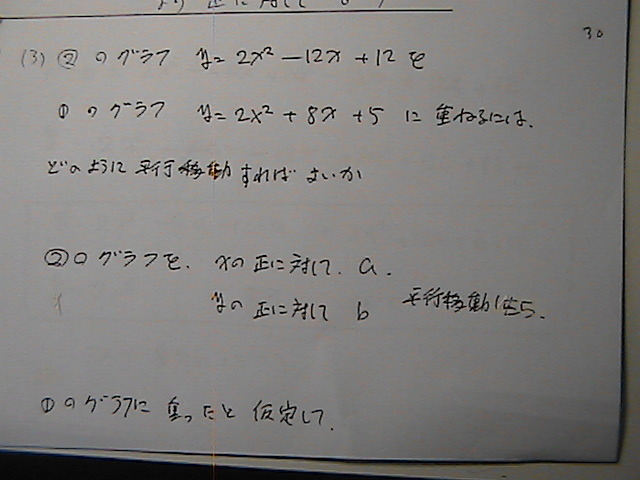 より 正に対して
30
(3) ② のグラフ y = 2x² - 12x + 12 を
① のグラフ y = 2x² + 8x + 5 に 重ねるには、
どのように 平行移動 すれば よいか
②のグラフを、xの正に対して、a、
yの正に対して b 平行移動したら、
①のグラフに 重ったと 仮定して、